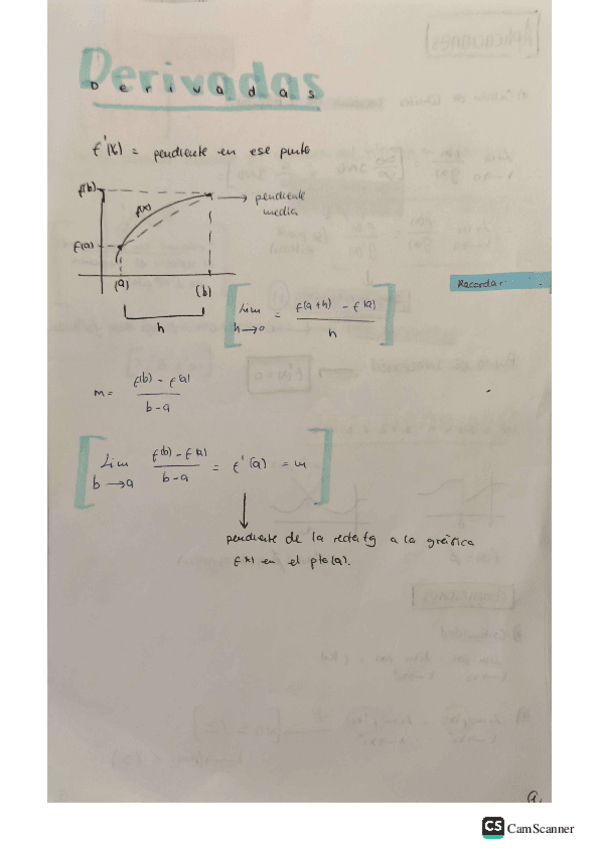 Derivadas
Derivadas
f'(x) = pendiente en ese punto
f(b)
f(x)
pendiente
media
f(a)
(a)
(b)
h
Recordar
[ Lim h→0 = f(a+h) - f(a) / h ]
m = f(b) - f(a) / b-a
[ Lim b→a f(b) - f(a) / b-a = f'(a) = m ]
pendiente de la recta tg a la gráfica
f(x) en el pto(a).
a.
CS CamScanner